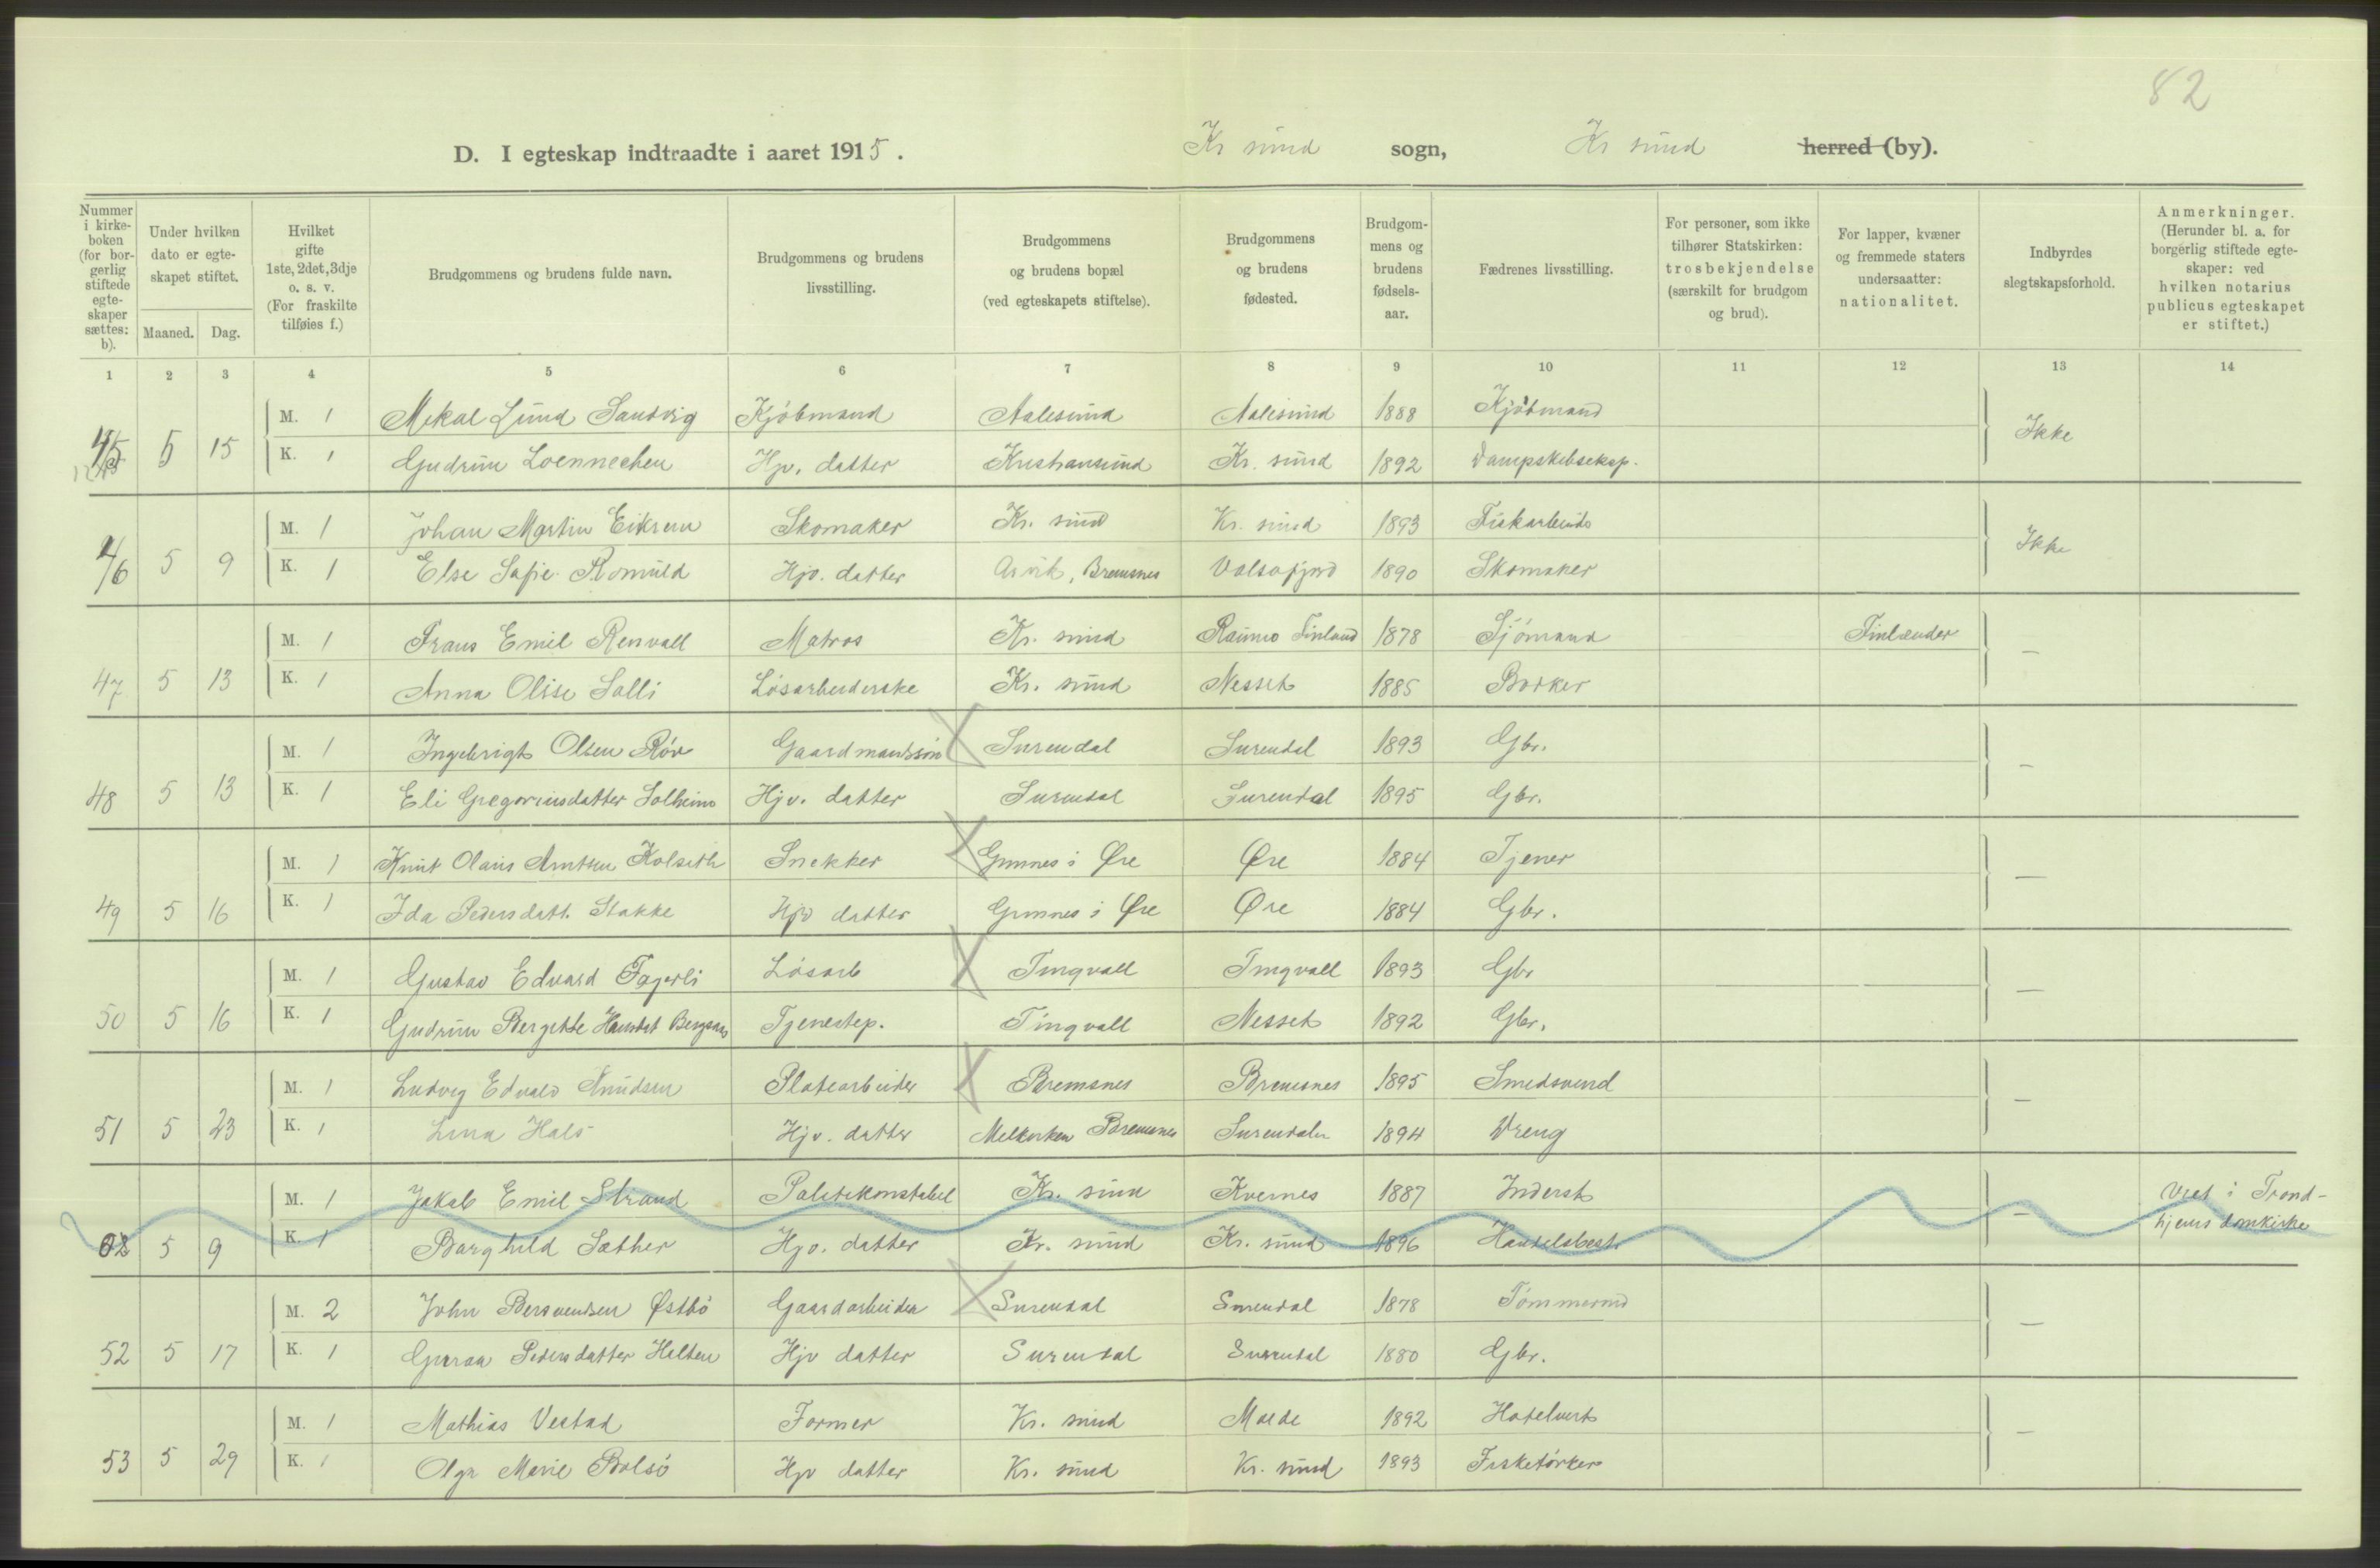 82
D. I egteskap indtraadte i aaret 1915. Kr sund sogn, Kr sund herred (by).
Nummer i kirke-boken (for bor-gerlig stiftede egte-skaper sættes: b). Under hvilken dato er egte-skapet stiftet. Maaned. Dag. Hvilket gifte 1ste, 2det, 3dje o. s. v. (For fraskilte tilføies f.) Brudgommens og brudens fulde navn. Brudgommens og brudens livsstilling. Brudgommens og brudens bopæl (ved egteskapets stiftelse). Brudgommens og brudens fødested. Brudgom-mens og brudens fødsels-aar. Fædrenes livsstilling. For personer, som ikke tilhører Statskirken: trosbekjendelse (særskilt for brudgom og brud). For lapper, kvæner og fremmede staters undersaatter: nationalitet. Indbyrdes slegtskapsforhold. Anmerkninger. (Herunder bl. a. for borgerlig stiftede egte-skaper: ved hvilken notarius publicus egteskapet er stiftet.)
1 2 3 4 5 6 7 8 9 10 11 12 13 14
M. 1 Mikal Lund Sandvig Kjöbmand Aalesund Aalesund 1888 Kjöbmand
45 5 15 K. 1 Gudrun Loennechen Hjv. datter Kristiansund Kr. sund 1892 Dampskibseksp. Ikke
M. 1 Johan Martin Eikrem Skomaker Kr. sund Kr. sund 1893 Fiskarbeider
46 5 9 K. 1 Else Sofie Romuld Hjv. datter Bremsnes Valsøfjord 1890 Skomaker Ikke
M. 1 Frans Emil Renvall Matros Kr. sund Raumo Finland 1878 Sjömand Finlænder
47 5 13 K. 1 Anna Olise Solli Lösarbeiderske Kr. sund Nesset 1885 Barker —
M. 1 Ingebrigt Olsen Röv Gaardmandssön Surendal Surendal 1893 Gbr.
48 5 13 K. 1 Eli Gregoriusdatter Solheim Hjv. datter Surendal Surendal 1895 Gbr. —
M. 1 Knut Olaus Arntsen Kolseth Snekker Gimnes i Øre Øre 1884 Tjener
49 5 16 K. 1 Ida Pedersdatt. Stakke Hjv datter Gimnes i Øre Øre 1884 Gbr. —
M. 1 Gustav Edvard Fagerli Lösarb Tingvoll Tingvoll 1893 Gbr
50 5 16 K. 1 Gudrun Bergitte Tjenestep. Tingvoll Nesset 1892 Gbr. —
M. 1 Ludvig Edvald Knudsen Platearbeider Bremsnes Bremsnes 1895 Smedsvend
51 5 23 K. 1 Lina Hals Hjv. datter Bremsnes Surendalen 1894 Dreng —
M. 1 Jakob Emil Strand Politikonstabel Kr. sund Kvernes 1887 Inderst Viet i Trond-
5 9 K. 1 Borghild Sæther Hjv. datter Kr. sund Kr. sund 1896 Handelsbest. — hjems domkirke
M. 2 John Bersvendsen Østbö Gaardarbeider Surendal Surendal 1878 Tömmermd
52 5 17 K. 1 Guraa Pedersdatter Halten Hjv datter Surendal Surendal 1880 Gbr. —
M. 1 Mathias Vestad Former Kr. sund Molde 1892 Hotelvert
53 5 29 K. 1 Olga Marie Bolsö Hjv datter Kr. sund Kr. sund 1893 Fisketörker —